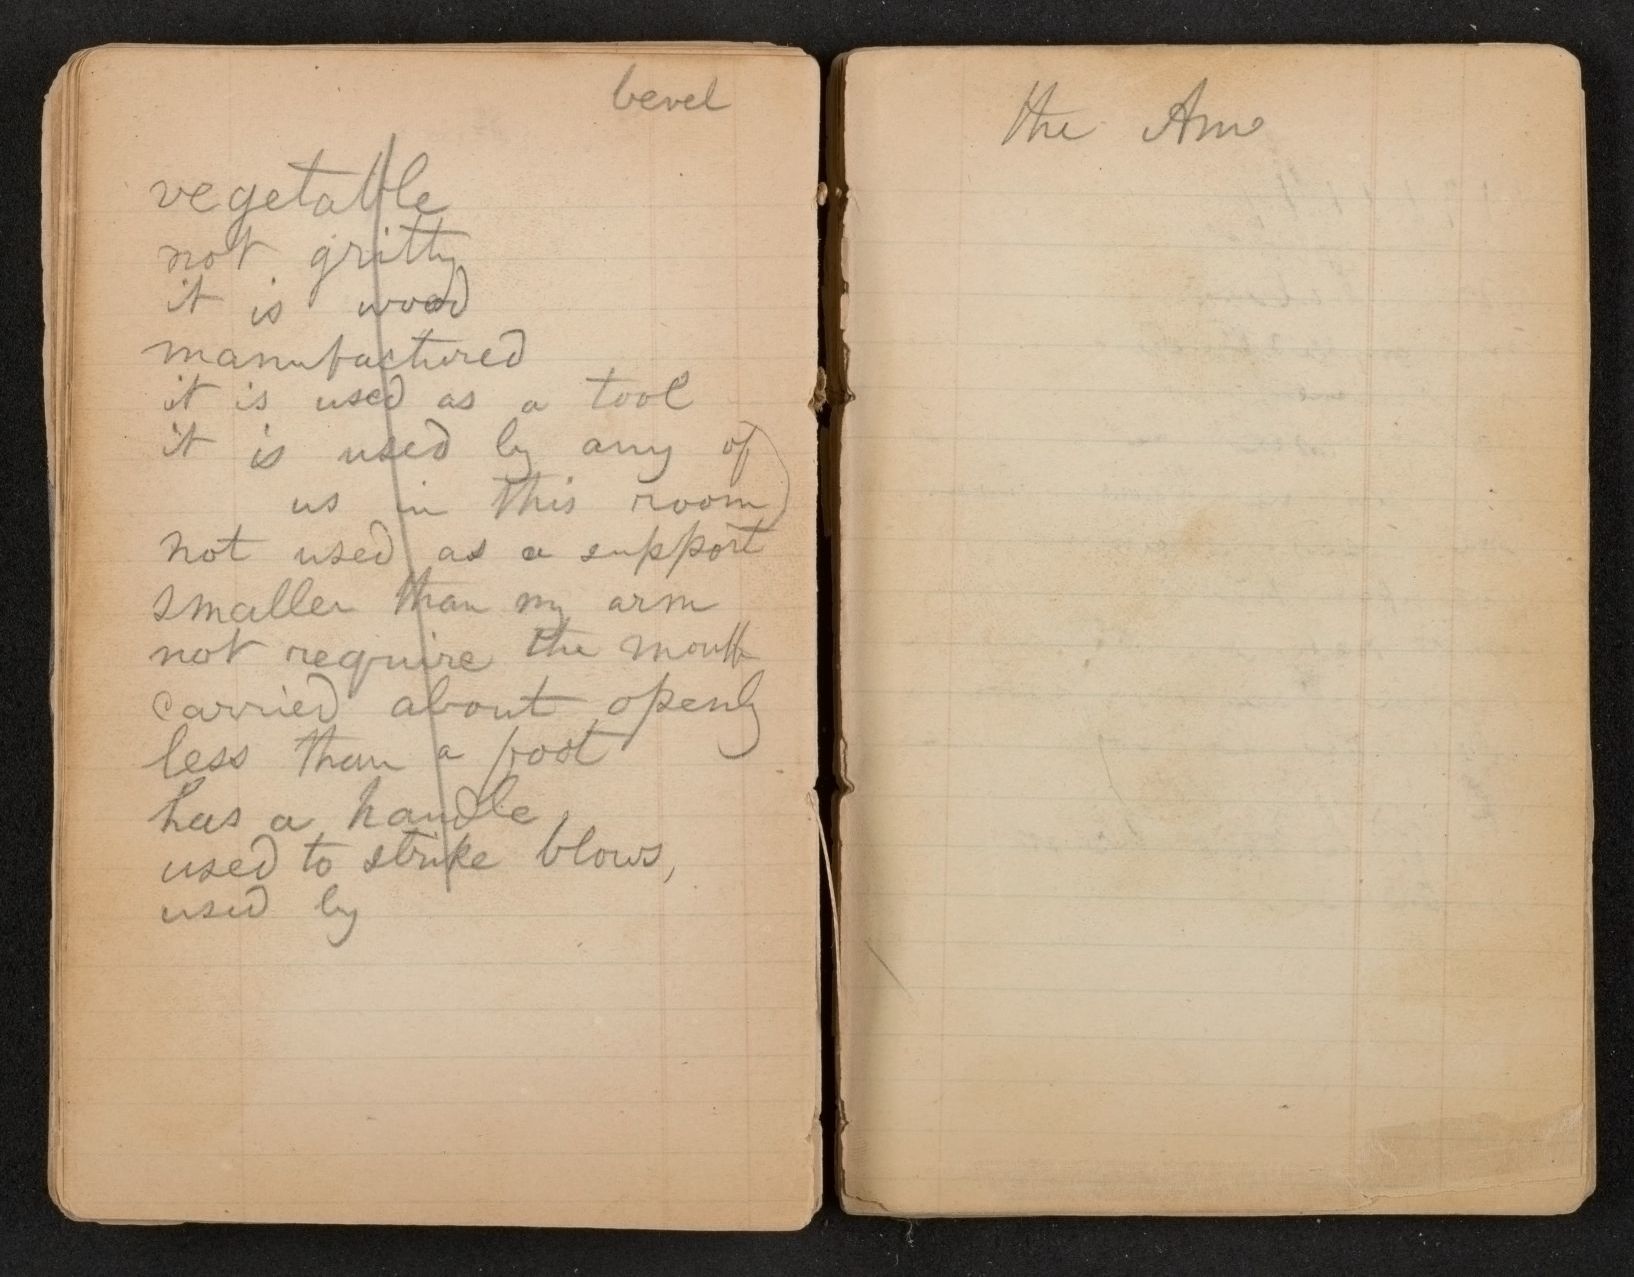 bevel
vegetable
not gritty
it is wood
manufactured
it is used as a tool
it is used by any of
us in this room
not used as a support
smaller than my arm
not require the mouth
carried about openly
less than a foot
has a handle
used to strike blows,
used by
the Am